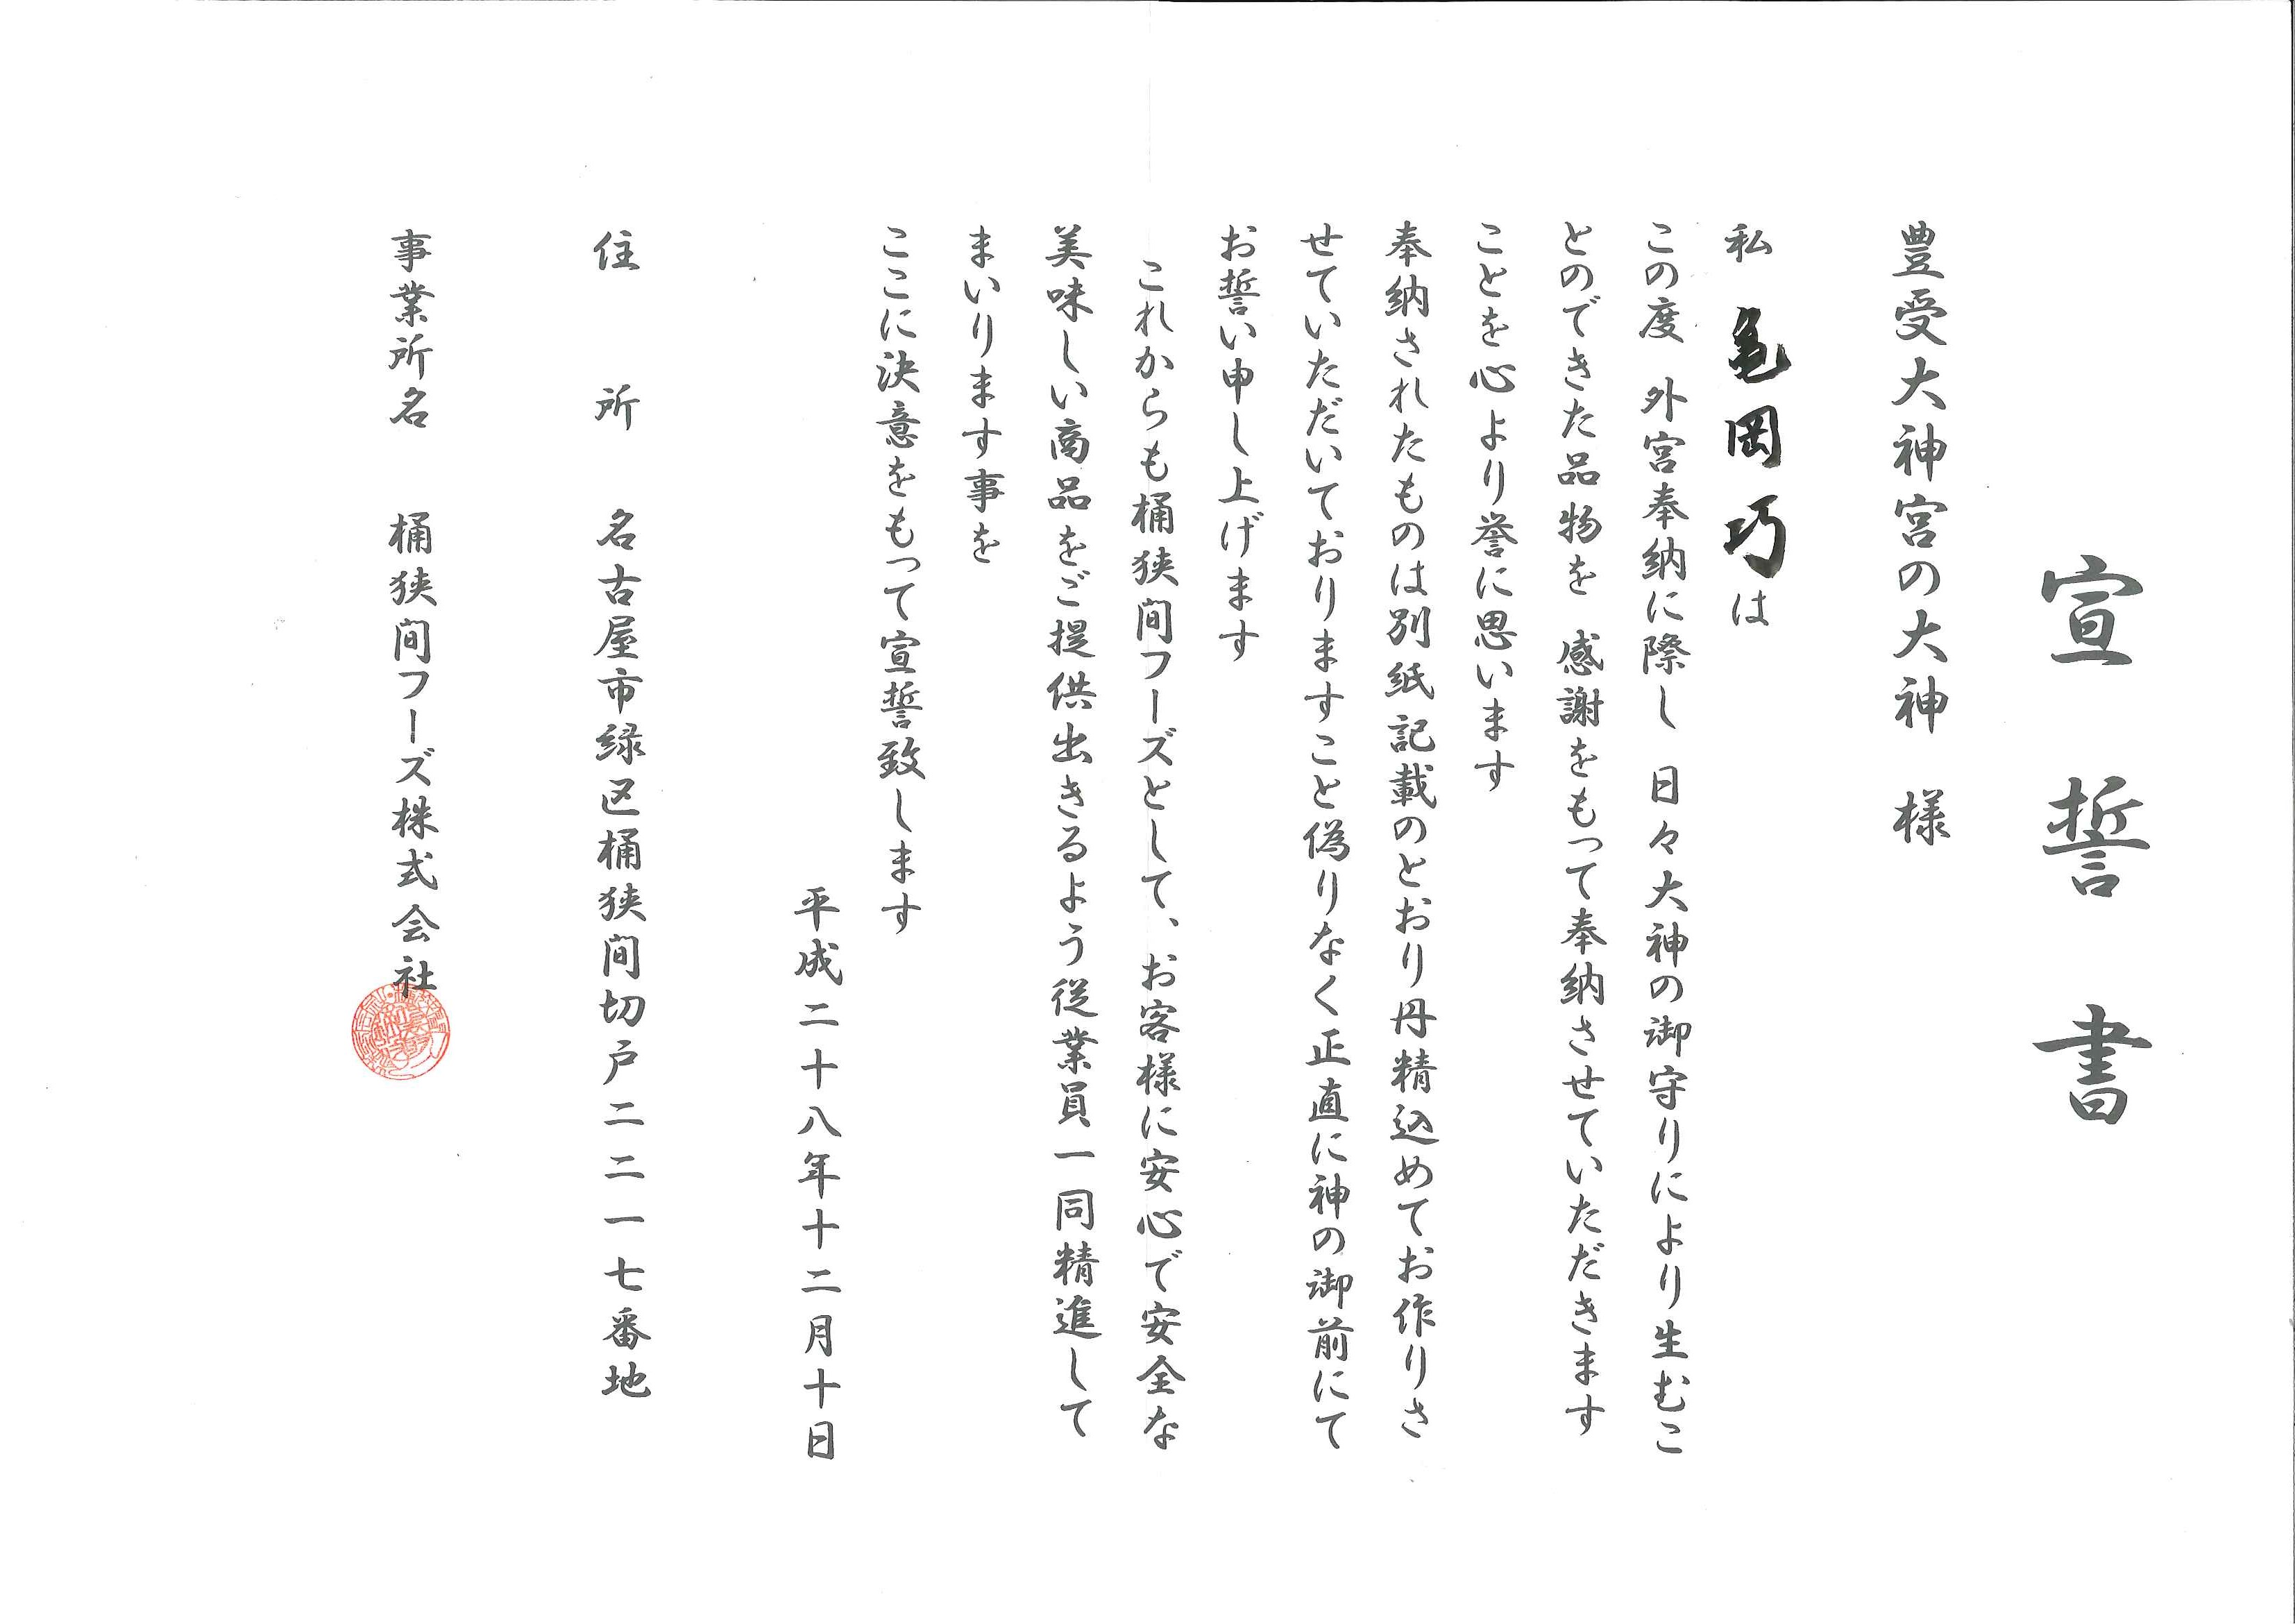 宣誓書
豊受大神宮の大神　様
私　亀岡巧は
この度　外宮奉納に際し　日々大神の御守りにより生むこ
とのできた品物を　感謝をもって奉納させていただきます
ことを心より誉に思います
奉納されたものは別紙記載のとおり丹精込めてお作りさ
せていただいておりますこと偽りなく正直に神の御前にて
お誓い申し上げます
これからも桶狭間フーズとして、お客様に安心で安全な
美味しい商品をご提供出きるよう従業員一同精進して
まいります事を
ここに決意をもって宣誓致します
平成二十八年十二月十日
住　所　名古屋市緑区桶狭間切戸二二一七番地
事業所名　桶狭間フーズ株式会社